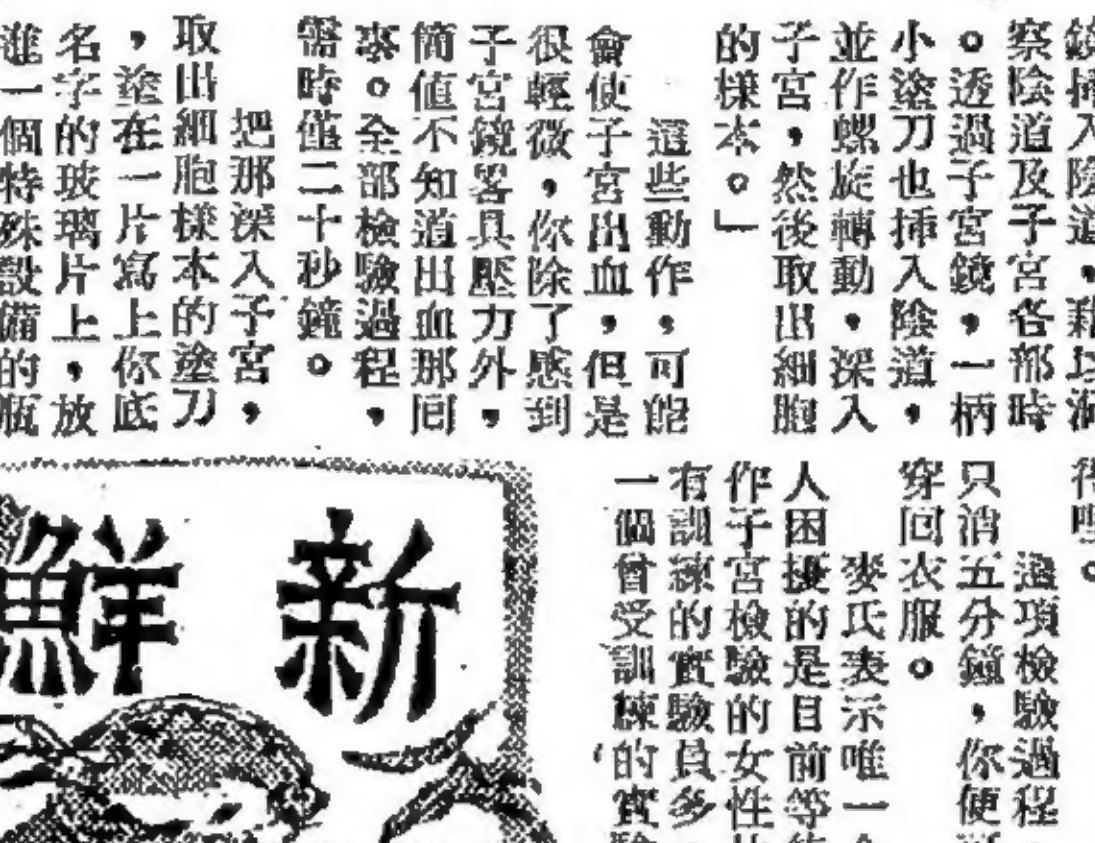 鏡插入陰道,
察陰道及子宮各部時
。透過子宮鏡,一柄
小塗刀也插入陰道,
並作螺旋轉動,深入
子宮,然後取出細胞
的樣本。」
這些動作,可能
會使子宮出血,但是
很輕微,你除了感到
子宮鏡畧具壓力外,
簡值不知道出血那囘
事。全部檢驗過程,
需時僅二十秒鐘。
把那深入子宮,
取出細胞樣本的塗刀
,塗在一片寫上你底
名字的玻璃片上,放
進一個特殊設備的瓶
這項檢驗過程
只消五分鐘,你便
穿囘衣服。
麥氏表示唯一
人困擾的是目前等
作子宮檢驗的女性
有訓練的實驗員多
一個曾受訓練的實
新鮮